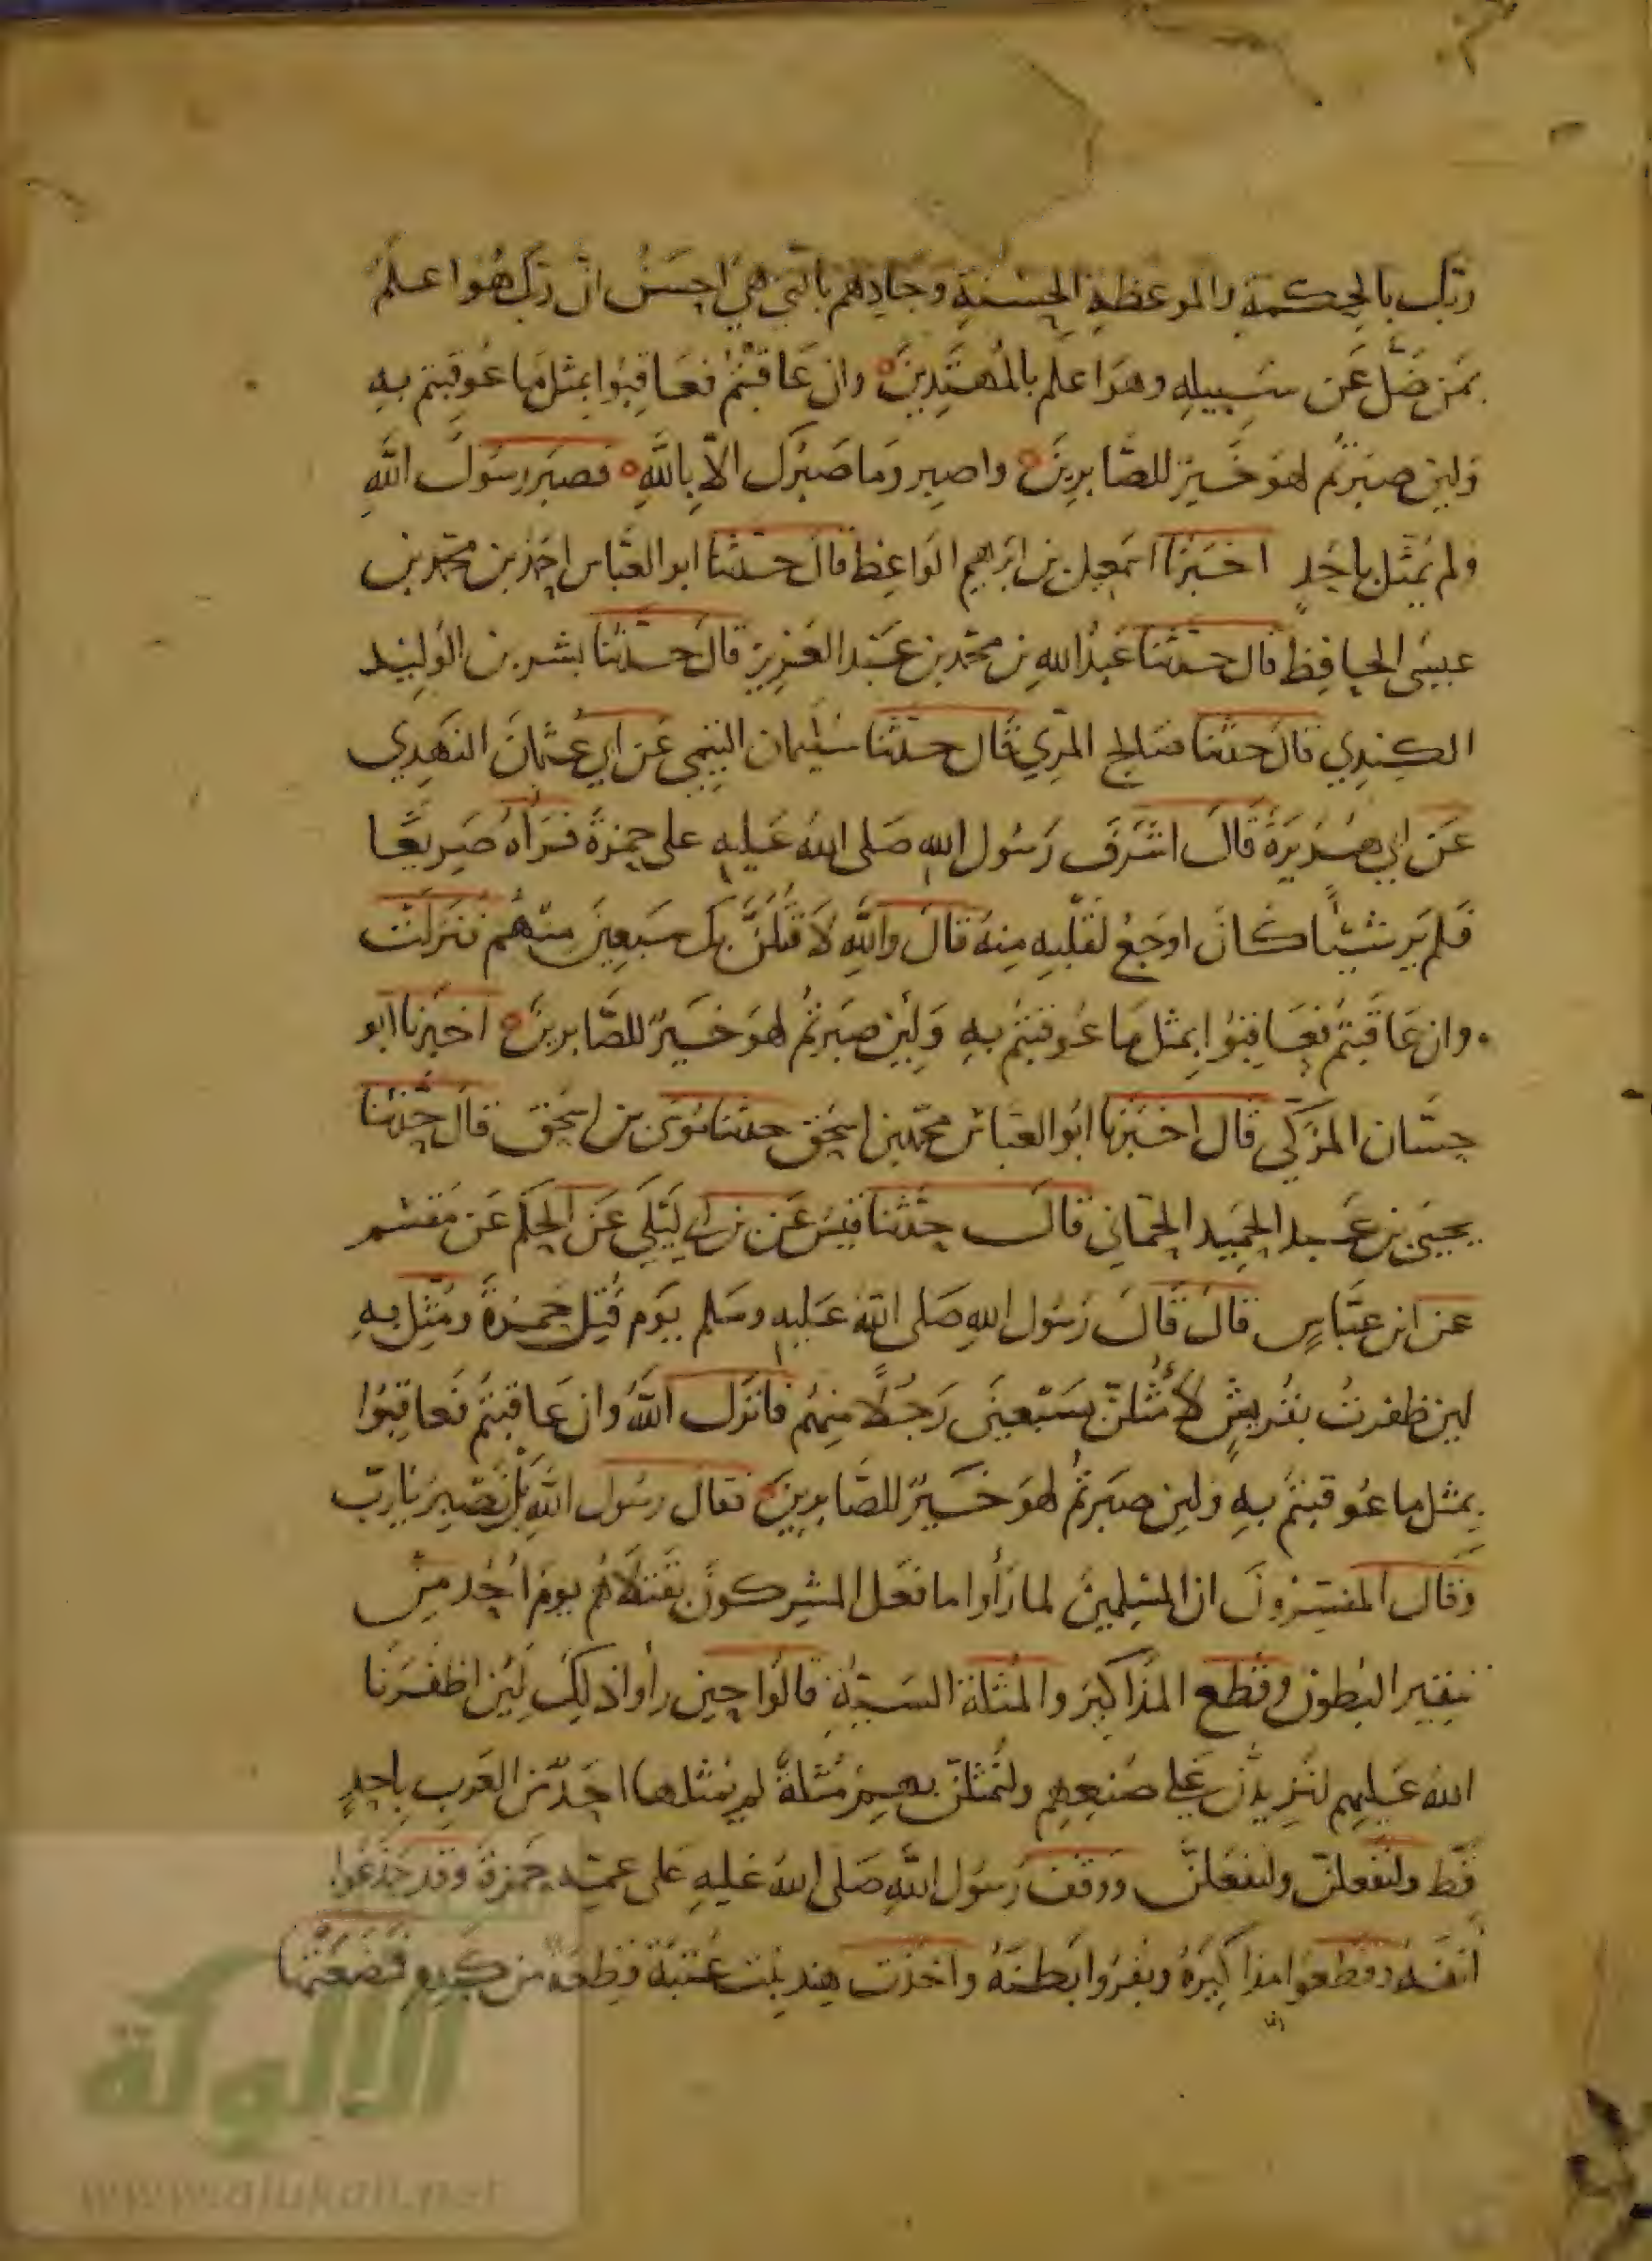 ربك بالحكمة والموعظة الحسنة وجادلهم بالتي هي احسن ان ربك هو اعلم
بمن ضل عن سبيله وهو اعلم بالمهتدين وان عاقبتم فعاقبوا بمثل ما عوقبتم به
ولين صبرتم لهو خير للصابرين واصبر وما صبرك الا بالله فصبر رسول الله
ولم يمثل باحد اخبرنا اسمعيل بن ابرهيم الواعظ قال حدثنا ابو العباس احمد بن محمد بن
عيسى الحافظ قال حدثنا عبد الله بن محمد بن عبد العزيز قال حدثنا بشر بن الوليد
الكندي قال حدثنا صالح المري قال حدثنا سليمان التيمي عن ابي عثمان النهدي
عن ابي هريرة قال اشرف رسول الله صلى الله عليه على حمزة فرآه صريعا
فلم ير شيئا كان اوجع لقلبه منه قال والله لاقتلن بك سبعين منهم فنزلت
وان عاقبتم فعاقبوا بمثل ما عوقبتم به ولئن صبرتم لهو خير للصابرين اخبرنا ابو
حسان المزكي قال اخبرنا ابو العباس محمد بن اسحق حدثنا موسى بن اسحق قال حدثنا
يحيى بن عبد الحميد الحماني قال حدثنا قيس عن بن ابي ليلى عن الحكم عن مقسم
عن ابن عباس قال قال رسول الله صلى الله عليه وسلم يوم قتل حمزة ومثل به
لين ظفرت بقريش لأمثلن بسبعين رجلا منهم فانزل الله وان عاقبتم فعاقبوا
بمثل ما عوقبتم به ولين صبرتم لهو خير للصابرين فقال رسول الله بل نصبر يا رب
وقال المفسرون ان المسلمين لما رأوا ما فعل المشركون بقتلاهم يوم احد من
تبقير البطون وقطع المذاكير والمثلة السيئة قالوا حين رأوا ذلك لئن اظفرنا
الله عليهم لنزيدن على صنيعهم ولنمثلن بهم مثلة لم يمثلها احد من العرب باحد
قط ولنفعلن ولنفعلن ووقف رسول الله صلى الله عليه على عمه حمزة وقد جدعوا
انفه وقطعوا مذاكيره وبقروا بطنه واخذت هند بنت عتبة قطعة من كبده فمضغتها
الألوكة
www.alukah.net